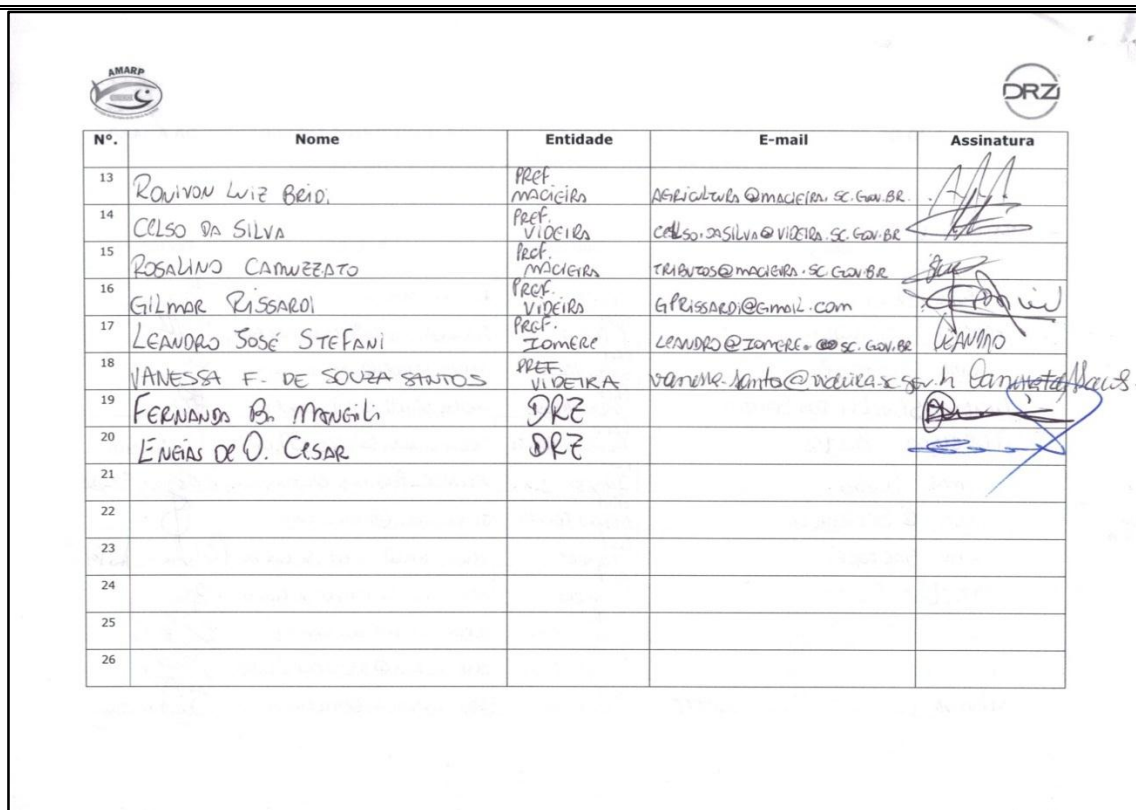 AMARP
DRZ
Nº. Nome Entidade E-mail Assinatura
13 RONIVON LUIZ BRIDI PREF. MACIEIRA AGRICULTURA@MACIEIRA.SC.GOV.BR
14 CELSO DA SILVA PREF. VIDEIRA CELSO.DASILVA@VIDEIRA.SC.GOV.BR
15 ROSALINO CAMUZZATO PREF. MACIEIRA TRIBUTOS@MACIEIRA.SC.GOV.BR
16 GILMAR RISSARDI PREF. VIDEIRA GPRISSARDI@GMAIL.COM
17 LEANDRO JOSÉ STEFANI PREF. IOMERE LEANDRO@IOMERE.SC.GOV.BR LEANDRO
18 VANESSA F. DE SOUZA SANTOS PREF. VIDEIRA
19 FERNANDA B. MANGILI DRZ
20 ENEIAS DE O. CESAR DRZ
21
22
23
24
25
26